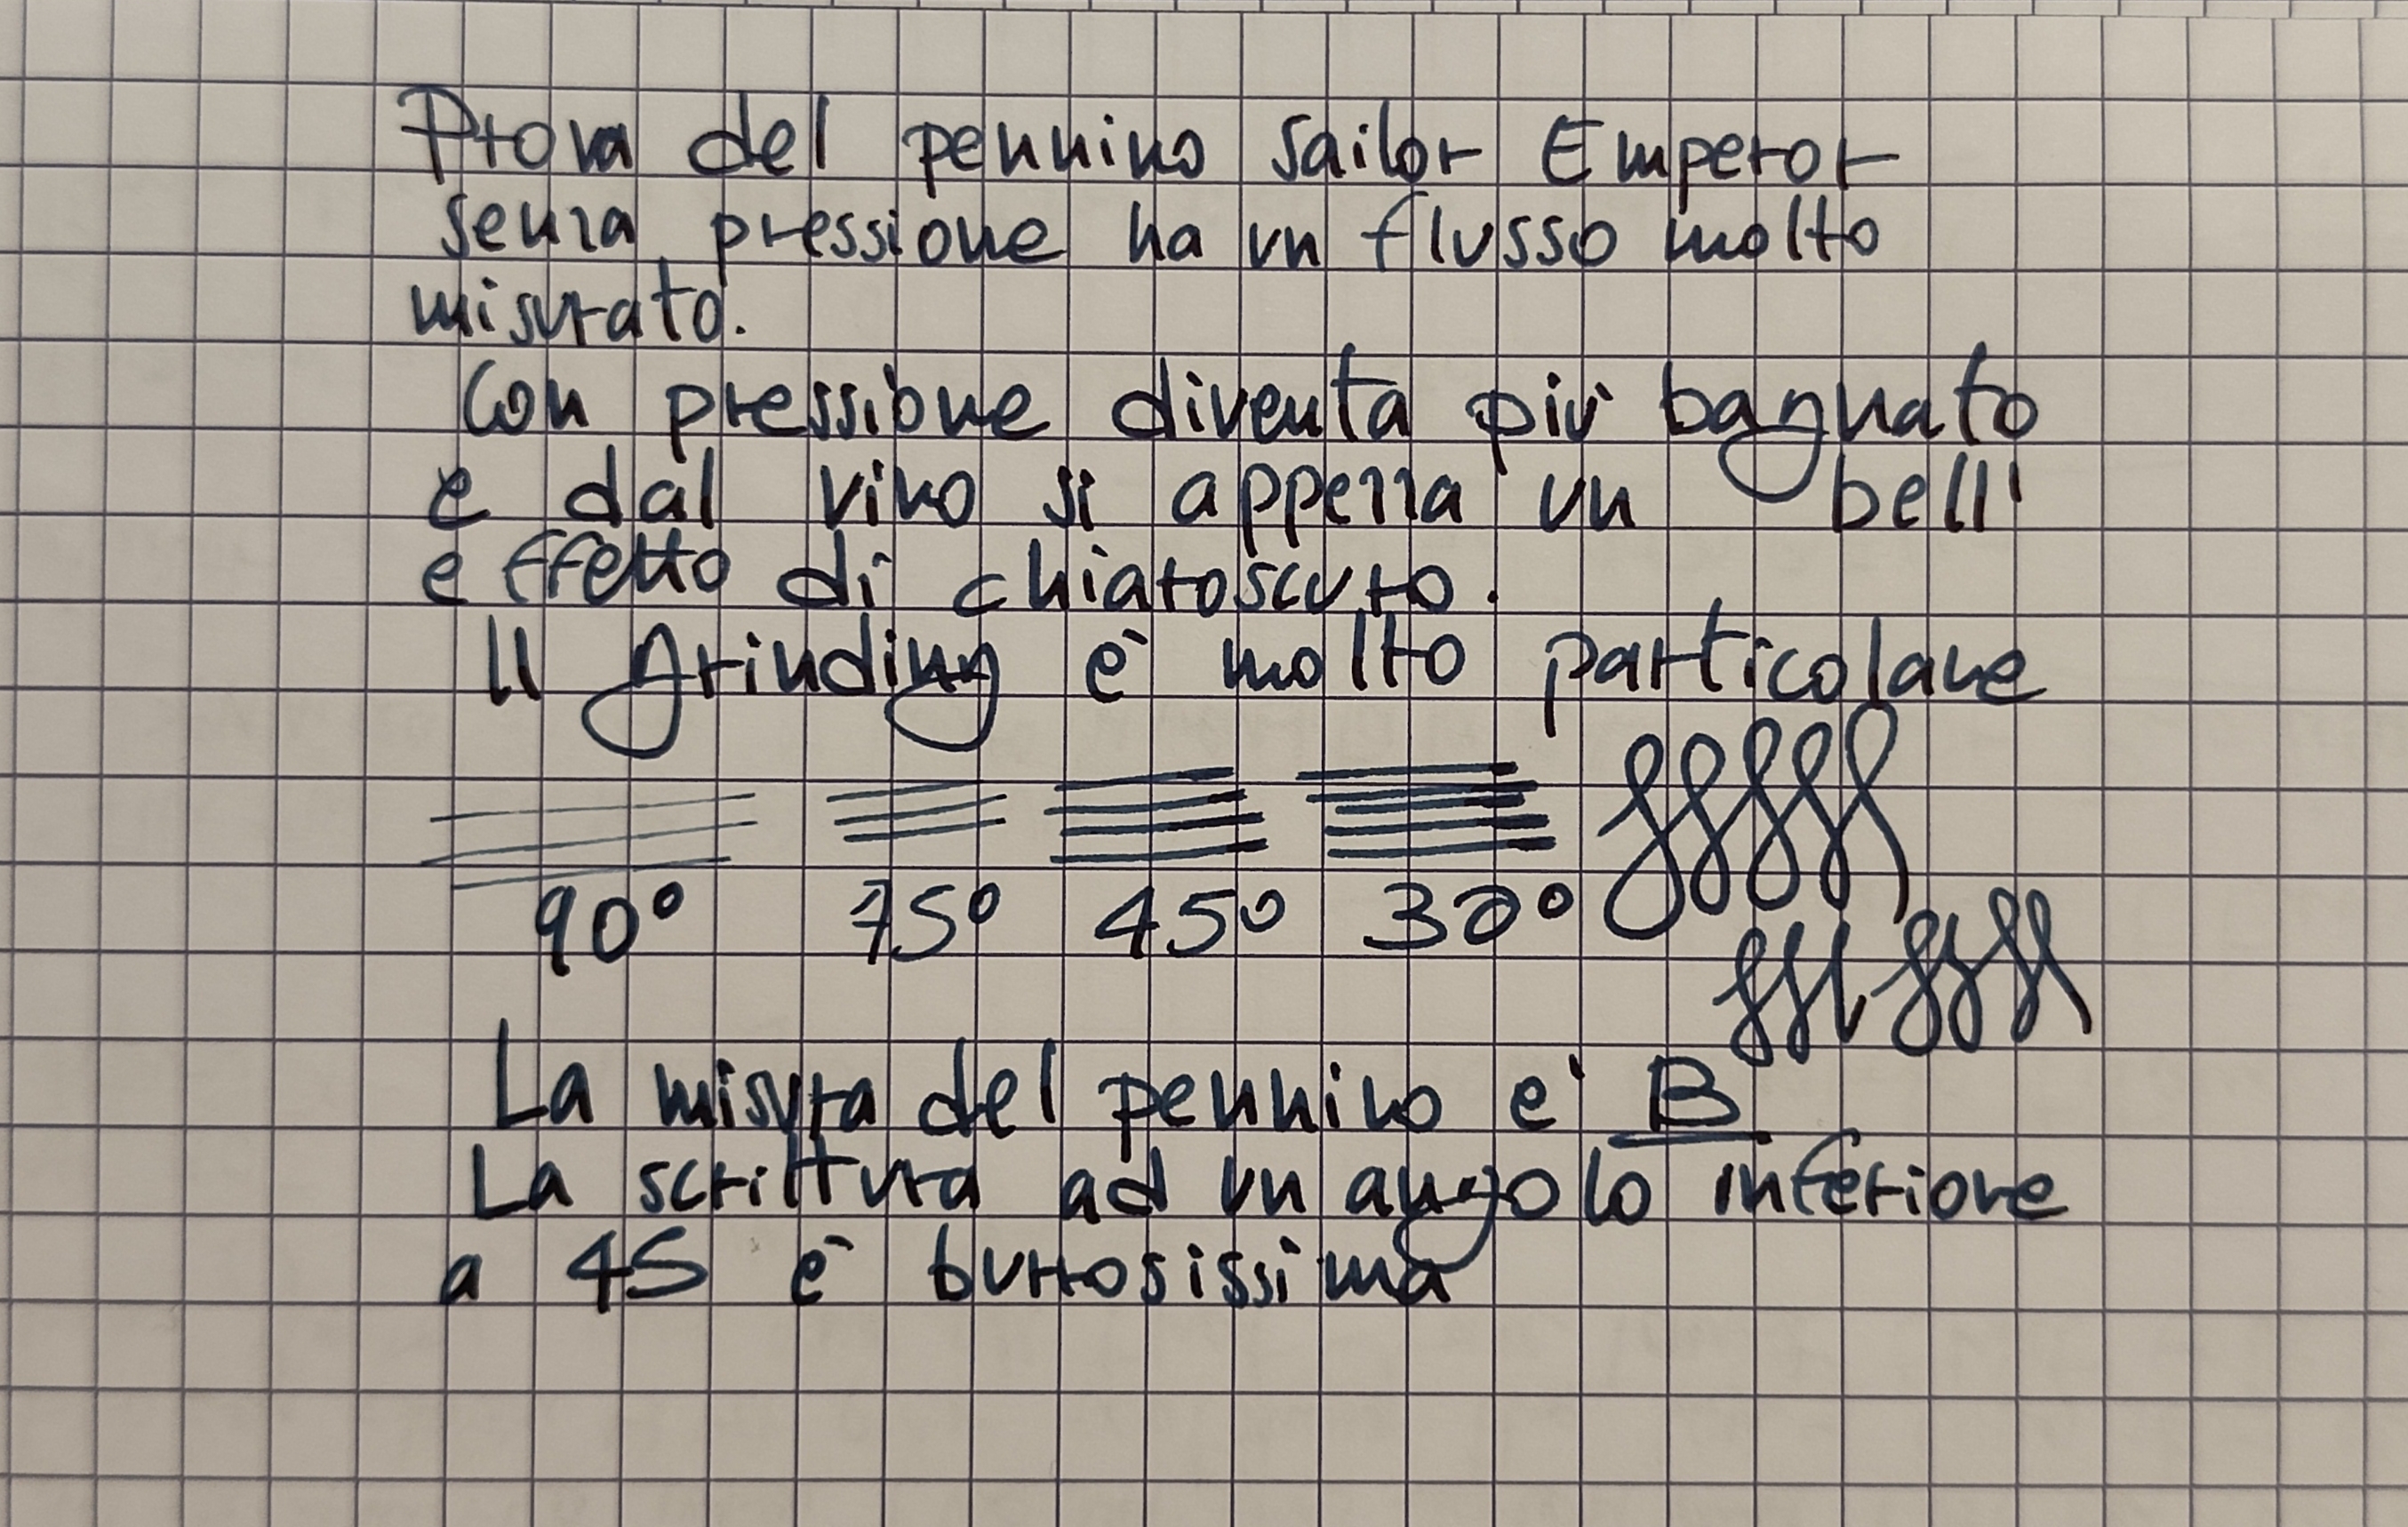 Prova del pennino Sailor Emperor
senza pressione ha un flusso molto
misurato.
Con pressione diventa più bagnato
e dal vivo si apprezza un bell'
effetto di chiaroscuro.
Il grinding è molto particolare
90° 75° 45° 30°
La misura del pennino è B
La scrittura ad un angolo inferiore
a 45 è burrosissima